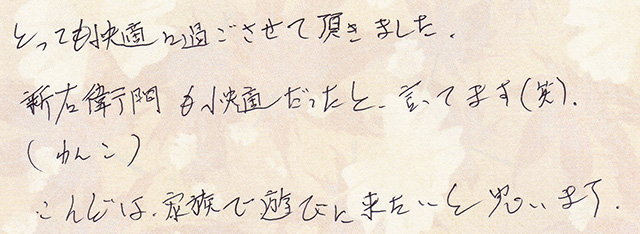 とっても快適に過ごさせて頂きました。
新右衛門も快適だったと、言ってます(笑)。
(わんこ)
こんどは、家族で遊びに来たいと思います。